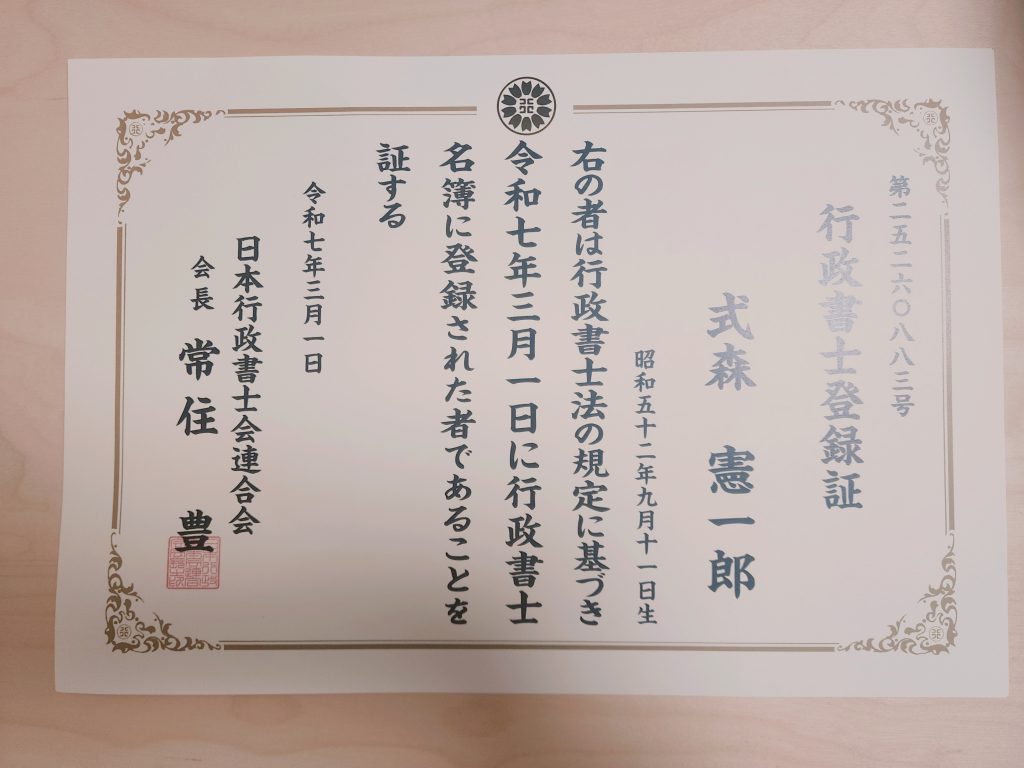 第二五二六〇八八三号
行政書士登録証
式森 憲一郎
昭和五十二年九月十一日生
右の者は行政書士法の規定に基づき
令和七年三月一日に行政書士
名簿に登録された者であることを
証する
令和七年三月一日
日本行政書士会連合会
会長 常住 豊